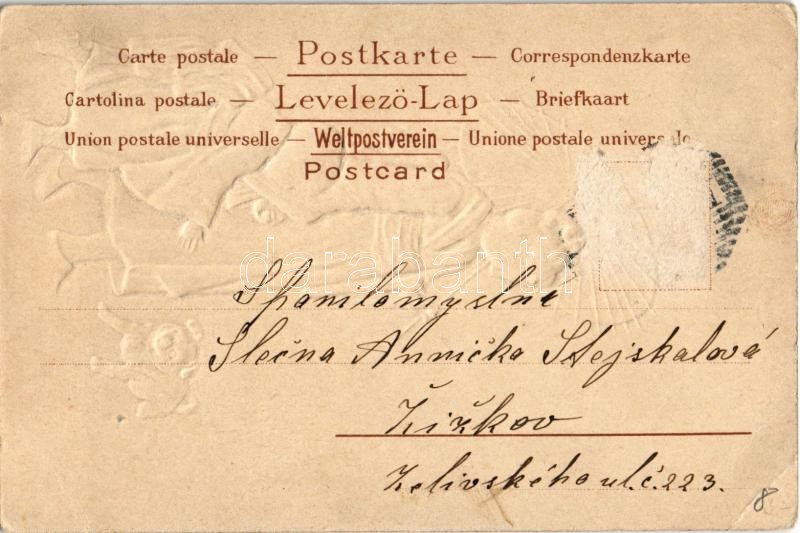 Carte postale — Postkarte — Correspondenzkarte
Cartolina postale — Levelezö-Lap — Briefkaart
Union postale universelle — Weltpostverein — Unione postale universale
Postcard
darabanth
Spanilomyslné
Slečna Annička Stejskalová
Žižkov
Želivského ul. č. 223.
8